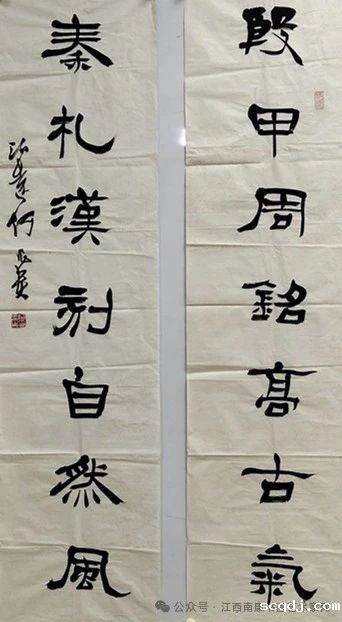 殷甲周銘高古氣
秦札漢刻自然風
公众号·江西南
scqdj.com